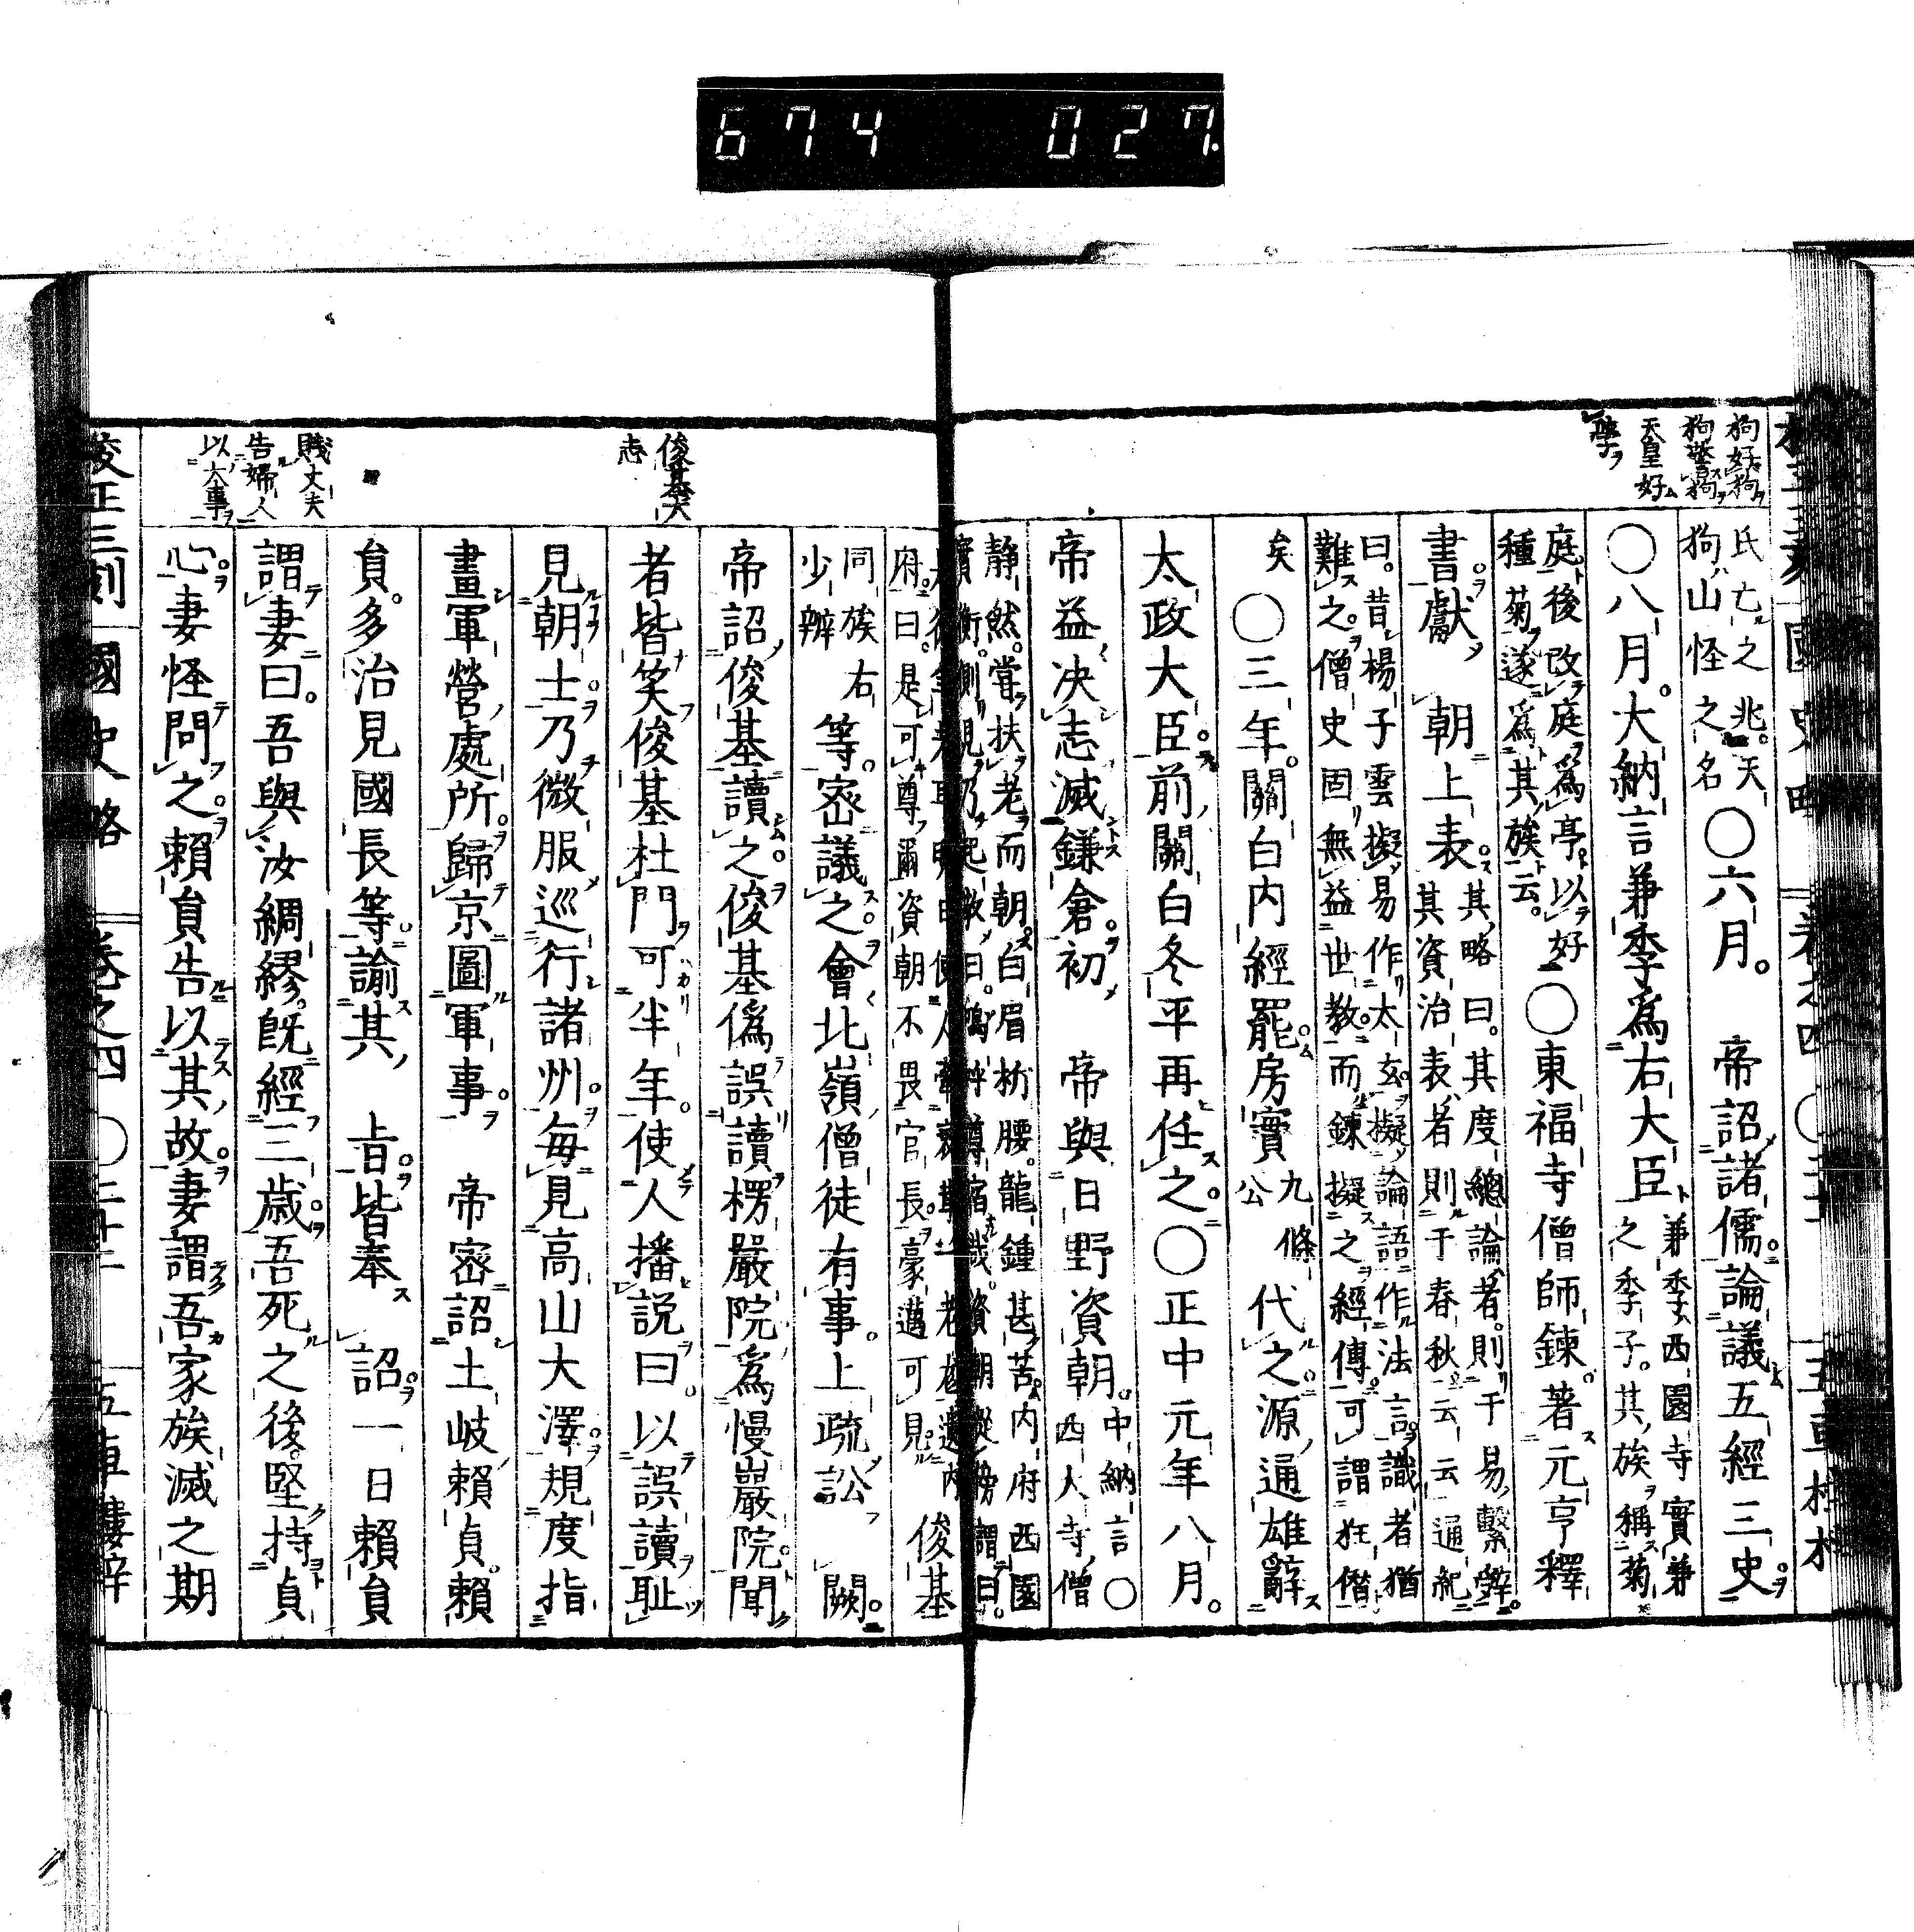 674 027
狗好狗
狗警狗
天皇好
學
氏亡之兆天
狗山怪之名
〇六月。帝詔諸儒論議五經三史
〇八月。大納言兼季爲右大臣
兼季西園寺實兼
之季子。其族稱菊
庭後改庭爲亭以好
種菊遂爲其族云。
〇東福寺僧師鍊著元亨釋
書獻朝上表
其略曰。其度總論者。則于易繫辭。
其資治表者則于春秋云云通紀
曰。昔楊子雲擬易作太玄。擬論語作法言識者猶
難之。僧史固無益世教。而鍊擬之經傳。可謂狂僭
矣
〇三年。關白内經罷。房實
九條
公
代之。源通雄辭
太政大臣。前關白冬平再任之。〇正中元年八月。
帝益決志滅鎌倉。初帝與日野資朝。
中納言〇
西大寺僧
静然。嘗扶老而朝。白眉折腰。龍鍾甚苦。内府西園
府曰。是可尊爾資朝不畏官長。豪邁可見
俊基
同族右
少辨
等。密議之。會北嶺僧徒有事。上疏訟闕。
帝詔俊基讀之。俊基僞誤讀楞嚴院爲慢嚴院。聞
者皆笑俊基杜門可半年。使人播説曰。以誤讀耻
見朝士乃微服巡行諸州。毎見高山大澤。規度指
畫軍營處所。歸京圖軍事。帝密詔土岐賴貞。賴
貟。多治見國長等。諭其旨。皆奉詔。一日賴貟
謂妻曰。吾與汝綢繆。既經三歳。吾死之後。堅持貞
心。妻怪問之。賴貟告以其故。妻謂吾家族滅之期
俊基大
志
賤丈夫
告婦人
以大事
校正三刻 國史略 卷之四 〇三十二 五車樓梓